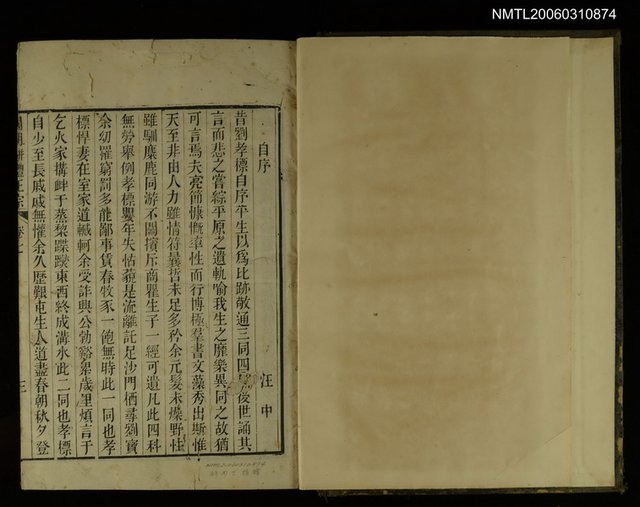 NMTL20060310874
自序
汪中
昔劉孝標自序平生以爲比跡敬通三同四異後世誦其
言而悲之嘗綜平原之遺軌喻我生之靡樂異同之故猶
可言焉夫亮節慷慨率性而行博極羣書文藻秀出斯惟
天至非由人力雖情符曩哲未足多矜余元髮未燥野性
雖馴麋鹿同游不關擯斥商瞿生子一經可遺凡此四科
無勞舉例孝標嬰年失怙藐是流離託足沙門栖尋劉寶
余幼罹窮罰多能鄙事賃舂牧豕一飽無時此一同也孝
標悍妻在室家道轗軻余受詐興公勃谿累歲里煩言于
乞火家搆衅于蒸黎蹀躞東西終成溝水此二同也孝標
自少至長戚戚無懽余久歷艱屯生人道盡春朝秋夕登
卷七
三
NMTL20060310874